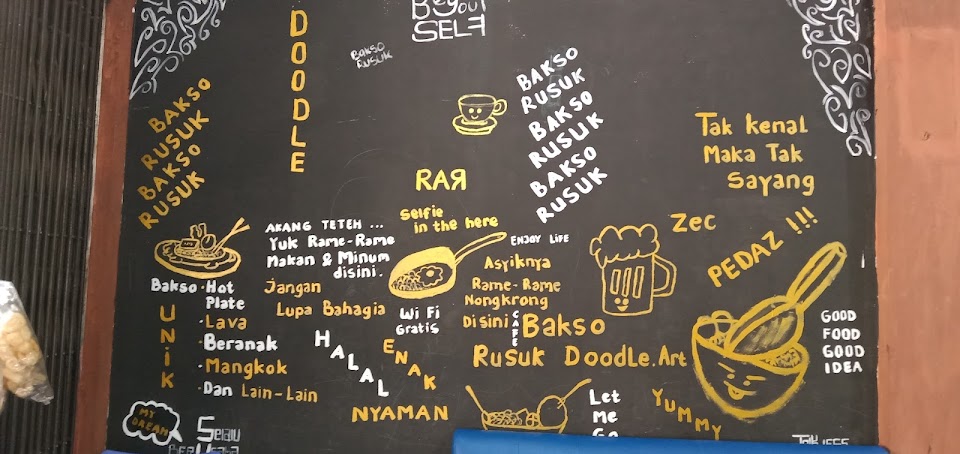 Be YOUR
SELF
DOODLE
BAKSO
RUSUK
BAKSO
RUSUK
BAKSO
RUSUK
BAKSO
RUSUK
BAKSO
RUSUK
BAKSO
RUSUK
Tak kenal
Maka Tak
Sayang
RAЯ
Selfie
in the here
ENJOY LIFE
Zec
PEDAZ !!!
AKANG TETEH ...
Yuk Rame-Rame
Makan & Minum
disini.
Jangan
Lupa Bahagia
Asyiknya
Rame-Rame
Nongkrong
Disini
CAFE
Bakso
Rusuk Doodle.Art
Wi Fi
Gratis
Bakso
UNIK
·Hot
Plate
·Lava
·Beranak
·Mangkok
·Dan Lain-Lain
HALAL
ENAK
NYAMAN
GOOD
FOOD
GOOD
IDEA
YUMMY
Let
Me
Go
MY
DREAM
Selalu